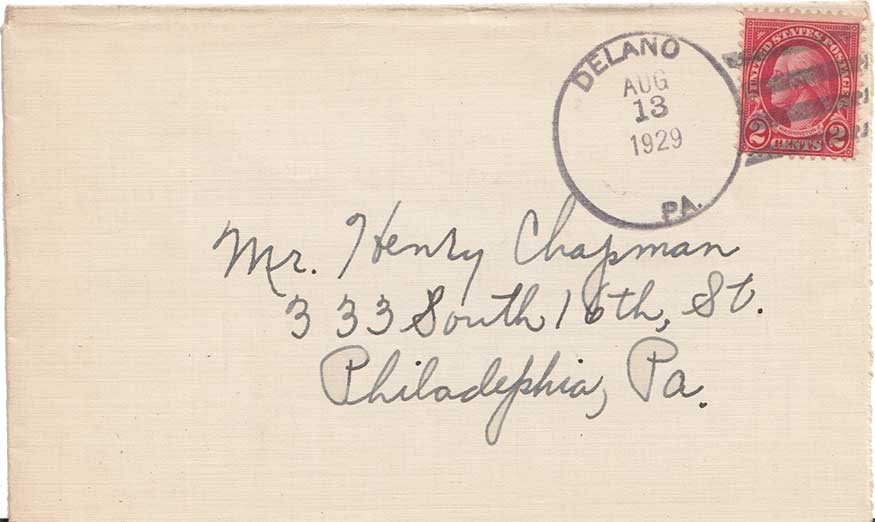 DELANO
AUG
13
1929
PA.
UNITED STATES POSTAGE
2 CENTS 2
Mr. Henry Chapman
333 South 16th, St.
Philadephia, Pa.